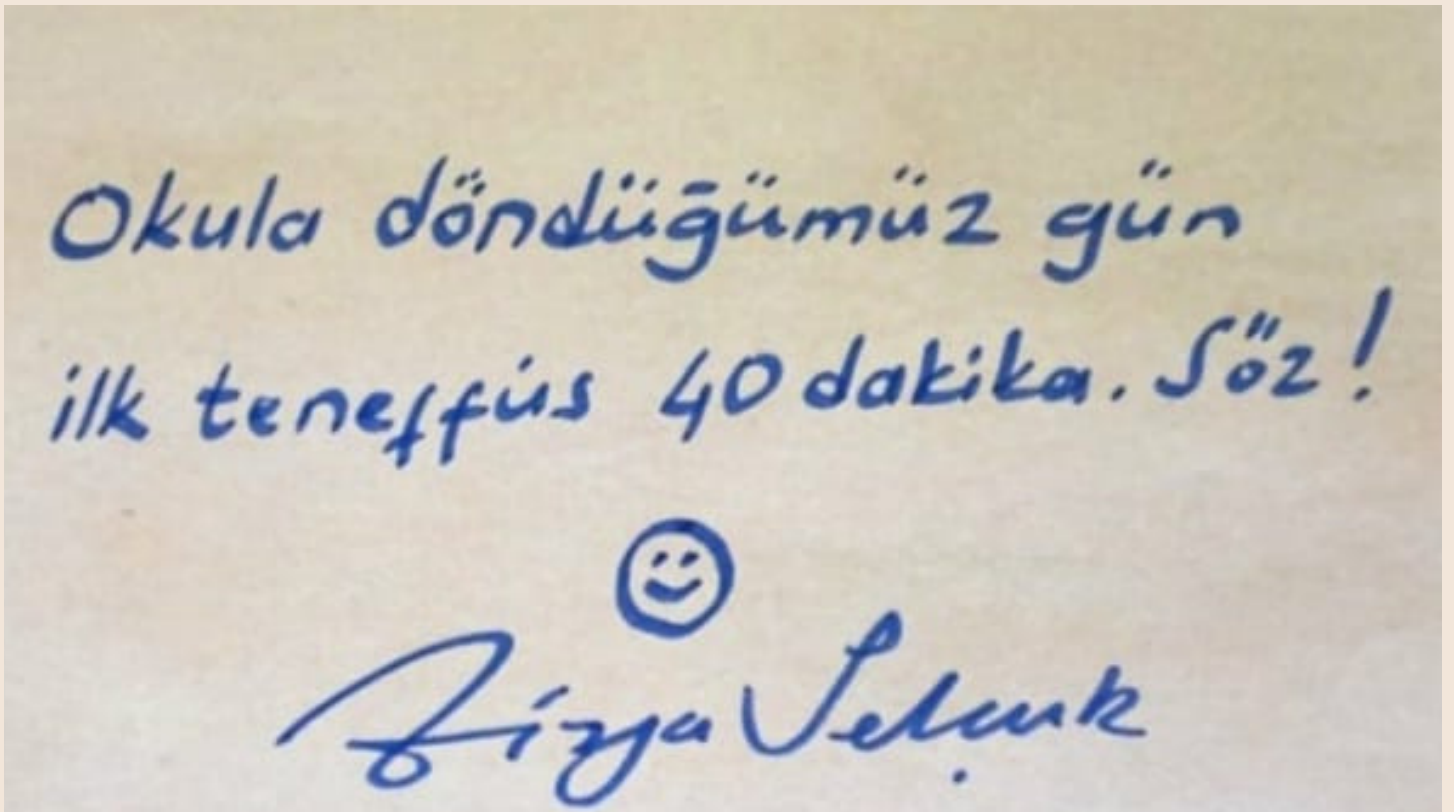 Okula döndüğümüz gün
ilk teneffüs 40 dakika. Söz!
Ziya Selçuk